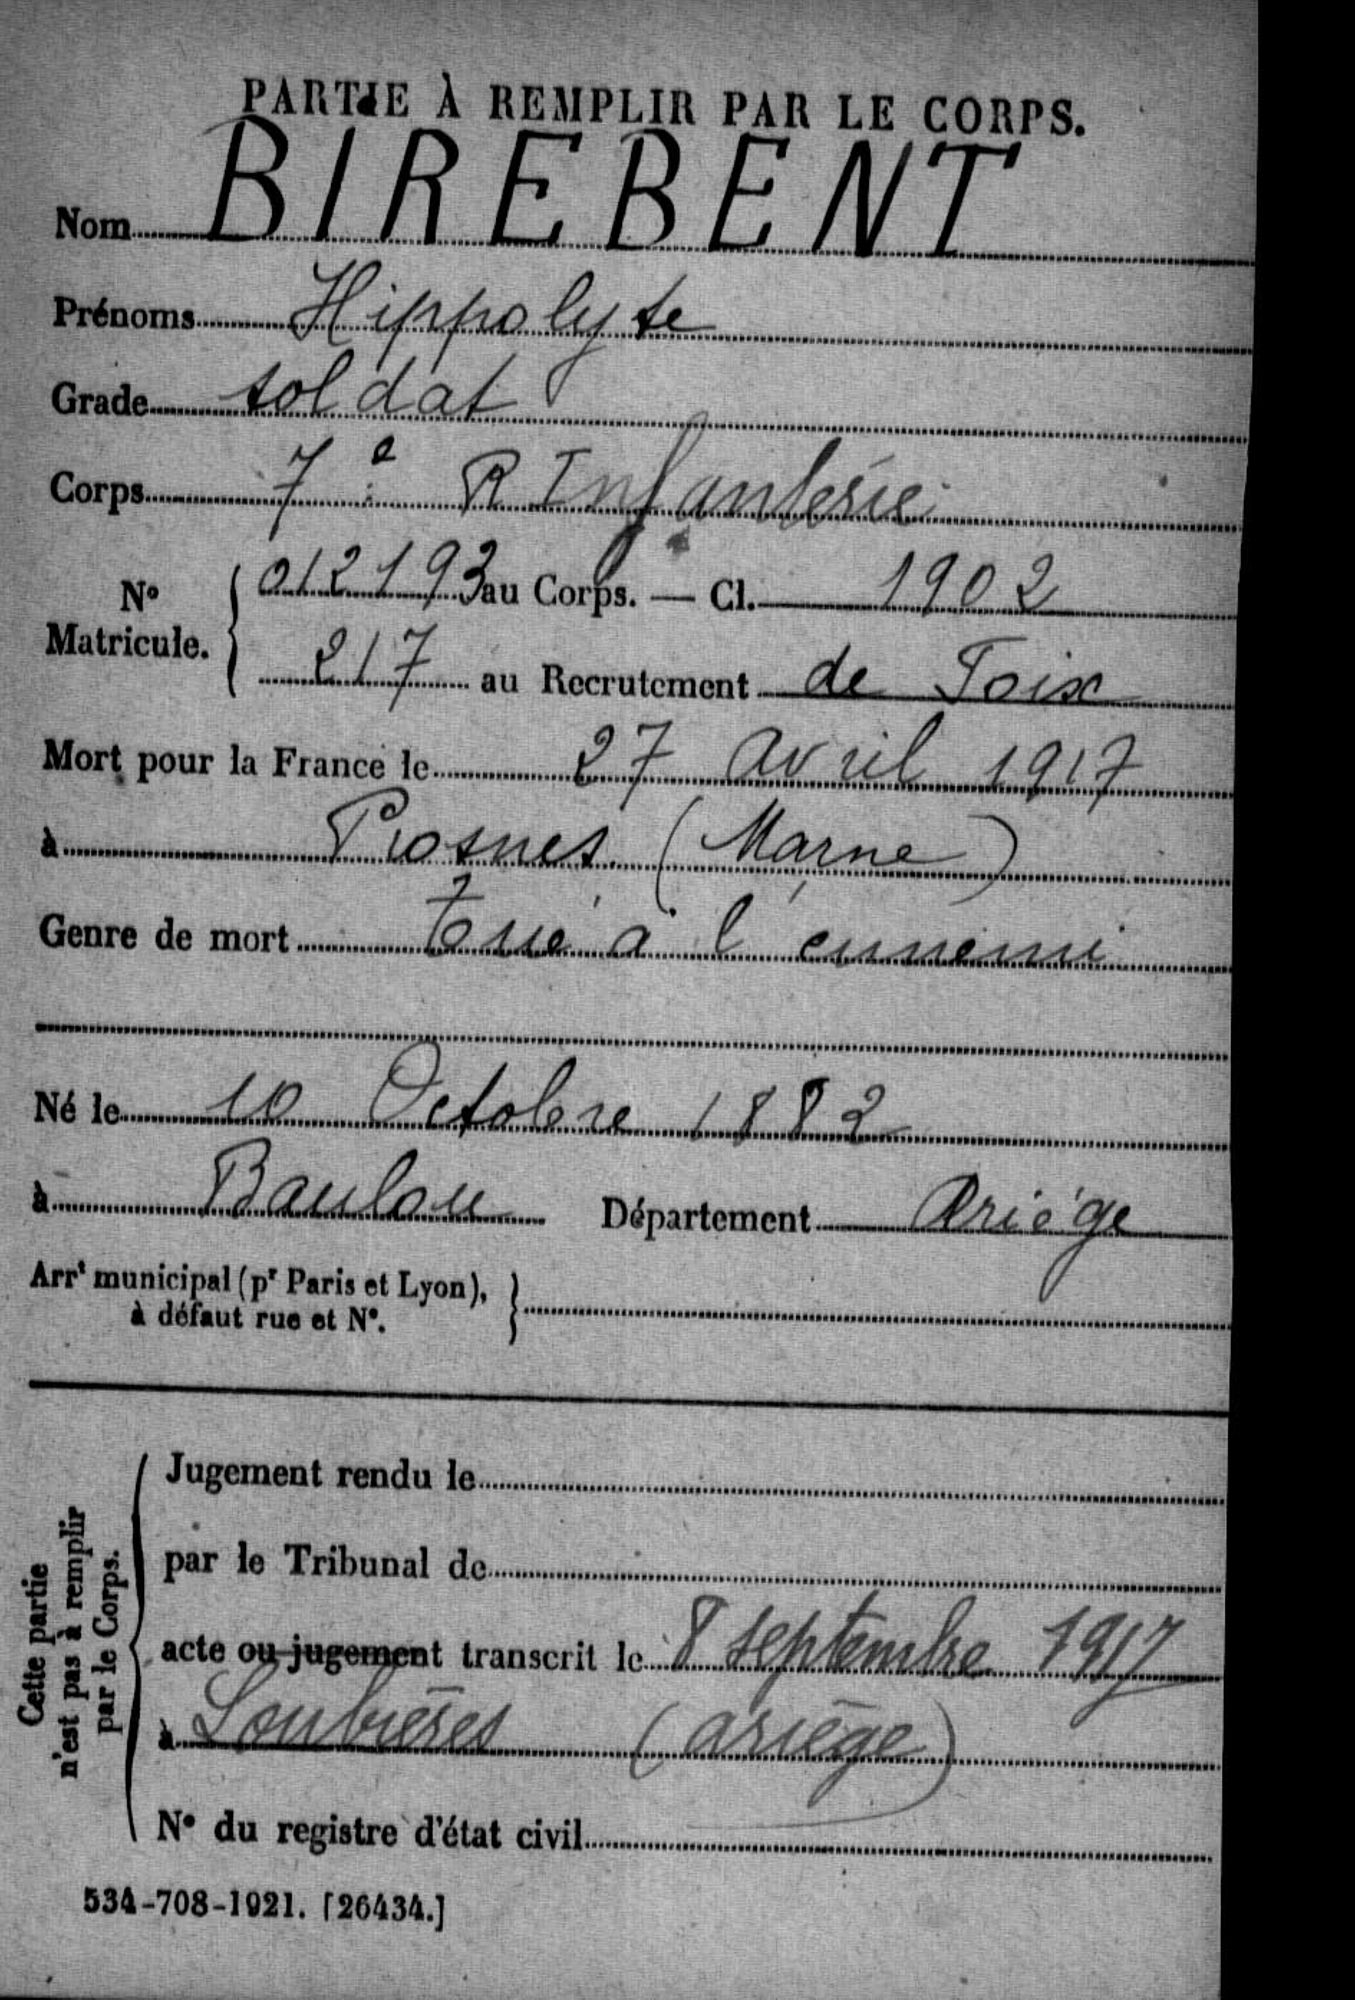 PARTIE À REMPLIR PAR LE CORPS.
Nom BIREBENT
Prénoms Hippolyte
Grade soldat
Corps 7e R Infanterie
N° Matricule. 012193 au Corps. — Cl. 1902
217 au Recrutement de Foix
Mort pour la France le 27 avril 1917
à Prosnes (Marne)
Genre de mort tué à l'ennemi
Né le 10 Octobre 1882
à Baulou Département Ariége
Arrt municipal (pr Paris et Lyon),
à défaut rue et N°.
Cette partie
n'est pas à remplir
par le Corps.
Jugement rendu le
par le Tribunal de
acte ou jugement transcrit le 8 septembre 1917
à Loubières (ariège)
N° du registre d'état civil
534-708-1921. [26434.]